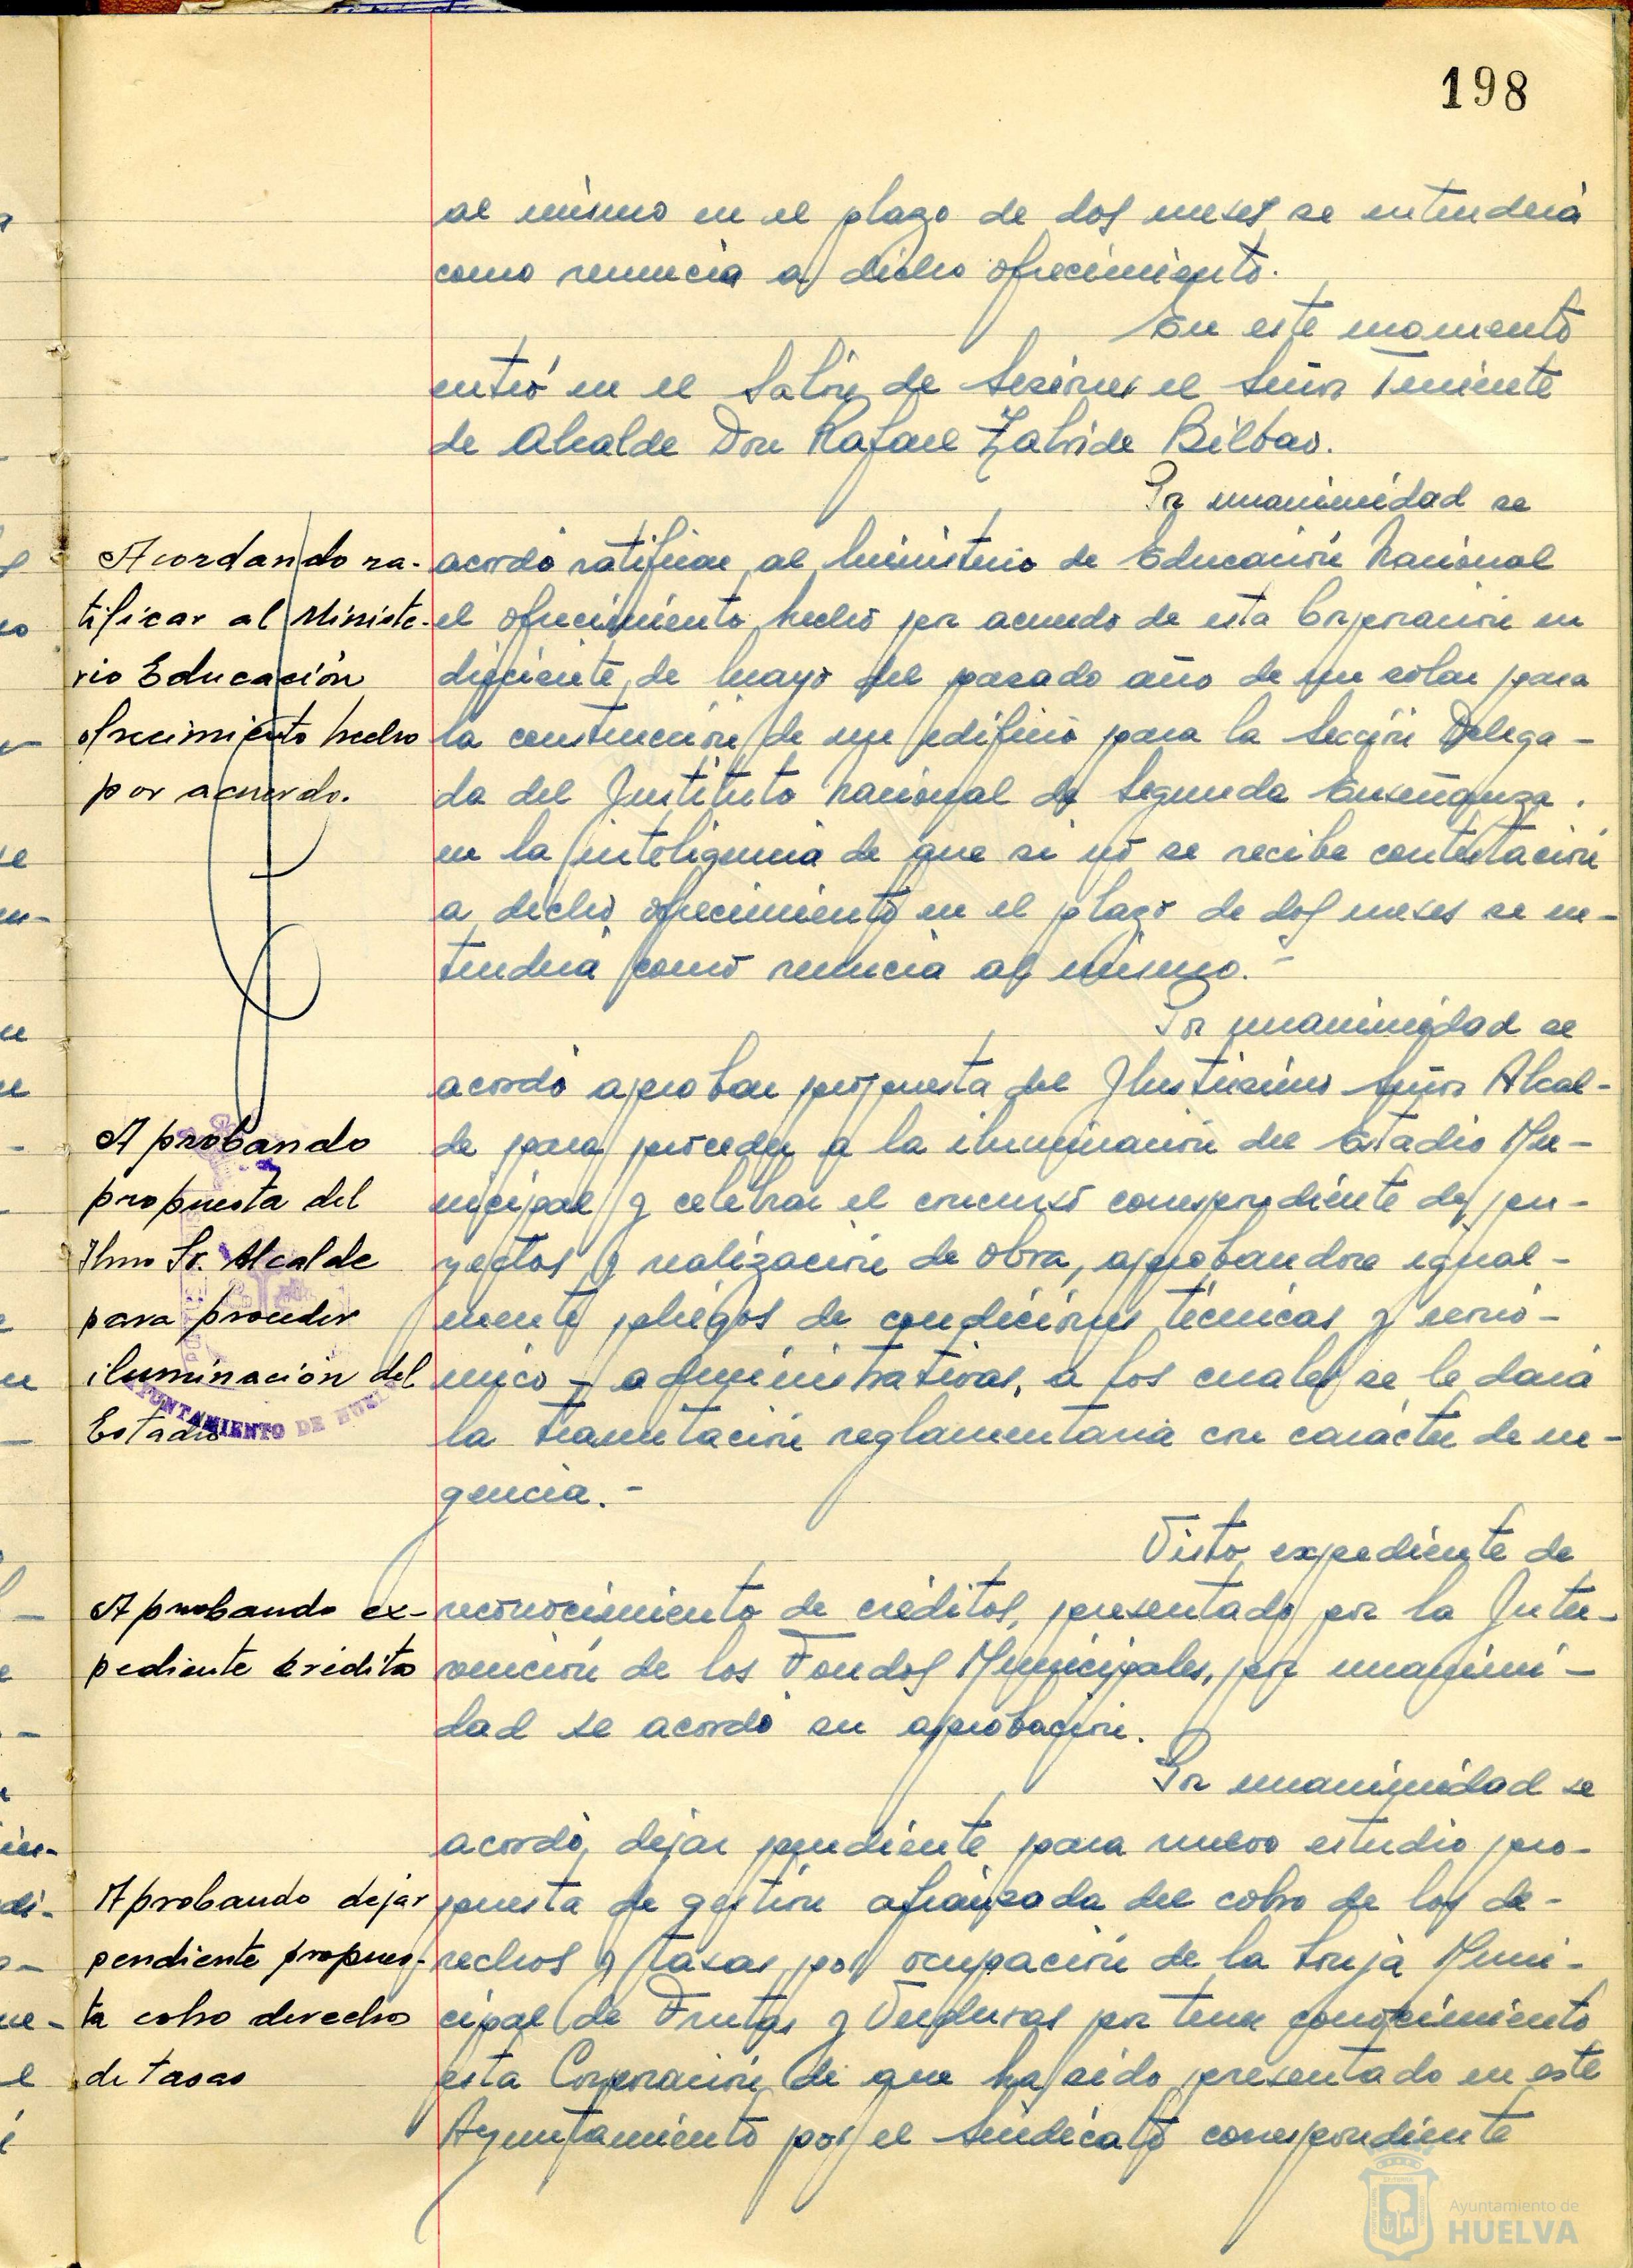 198
al mismo en el plazo de dos meses se entenderá
como renuncia a dicho ofrecimiento.
En este momento
entró en el Salón de Sesiones el Señor Teniente
de Alcalde Don Rafael Zalvide Bilbao.
Por unanimidad se
Acordando ra-
tificar al Ministe-
rio Educación
ofrecimiento hecho
por acuerdo.
acordó ratificar al Ministerio de Educación Nacional
el ofrecimiento hecho por acuerdo de esta Corporación en
diecisiete de Mayo del pasado año de un solar para
la construcción de un edificio para la Sección Delega-
da del Instituto Nacional de Segunda Enseñanza.
en la inteligencia de que si no se recibe contestación
a dicho ofrecimiento en el plazo de dos meses se en-
tenderá como renuncia al mismo.-
Por unanimidad se
acordó aprobar propuesta del Ilustrísimo Señor Alcal-
Aprobando
propuesta del
Ilmo Sr. Alcalde
para proceder
iluminación del
Estadio
AYUNTAMIENTO DE HUELVA
de para proceder a la iluminación del Estadio Mu-
nicipal y celebrar el concurso correspondiente de pro-
yectos y realización de obra, aprobandose igual-
mente pliegos de condiciones técnicas y econó-
mico-administrativas, a los cuales se le dará
la tramitación reglamentaria con carácter de ur-
gencia.-
Visto expediente de
Aprobando ex-
pediente crédito
reconocimiento de créditos, presentado por la Inter-
vención de los Fondos Municipales, por unanimi-
dad se acordó su aprobación.
Por unanimidad se
acordó, dejar pendiente para nuevo estudio pro-
Aprobando dejar
pendiente propues-
ta cobro derechos
de tasas
puesta de gestión afianzada del cobro de los de-
rechos y tasas por ocupación de la Lonja Muni-
cipal de Frutas y Verduras por tener conocimiento
esta Corporación de que ha sido presentado en este
Ayuntamiento por el Sindicato correspondiente
Ayuntamiento de
HUELVA